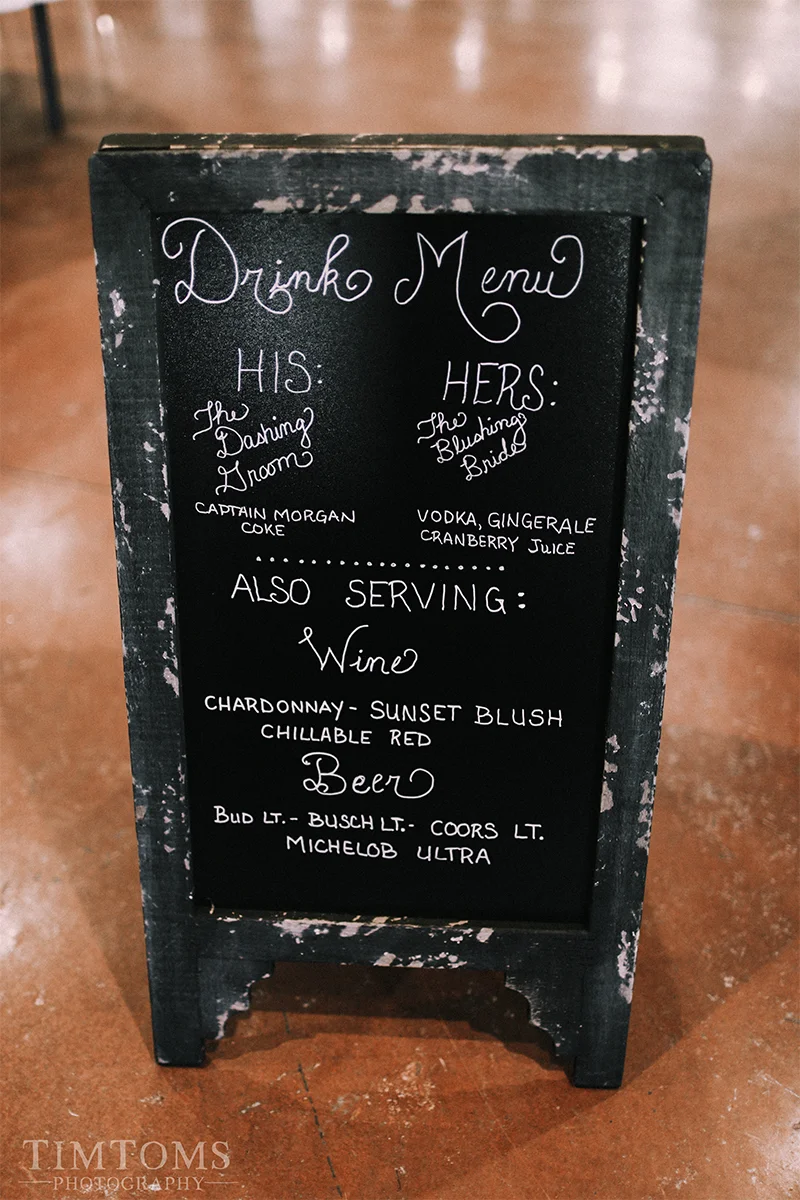 Drink Menu
HIS:
The
Dashing
Groom
CAPTAIN MORGAN
COKE
HERS:
The
Blushing
Bride
VODKA, GINGERALE
CRANBERRY JUICE
ALSO SERVING:
Wine
CHARDONNAY - SUNSET BLUSH
CHILLABLE RED
Beer
BUD LT. - BUSCH LT. - COORS LT.
MICHELOB ULTRA
TIMTOMS
PHOTOGRAPHY